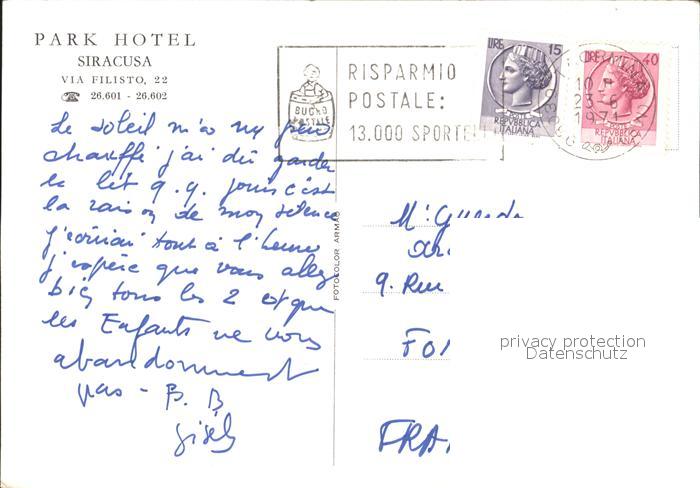 PARK HOTEL
SIRACUSA
VIA FILISTO, 22
☎ 26.601 - 26.602
LIRE 15
LIRE 40
POSTE
REPVBBLICA
ITALIANA
POSTE
REPVBBLICA
ITALIANA
TAORMINA
10
23-6
1971
RISPARMIO
POSTALE:
13.000 SPORTE
BUONO
POSTALE
Le soleil m'a un peu
chauffé j'ai dû garder
le lit q.q. jours c'est
la raison de mon silence
j'écrirai tout à l'heure
j'espère que vous allez
bien tous les 2 et que
les Enfants ne vous
abandonnent
pas - B. B
Gisèle
FOTOCOLOR ARMAO
Mr
9. Rue
FO
FRA
privacy protection
Datenschutz